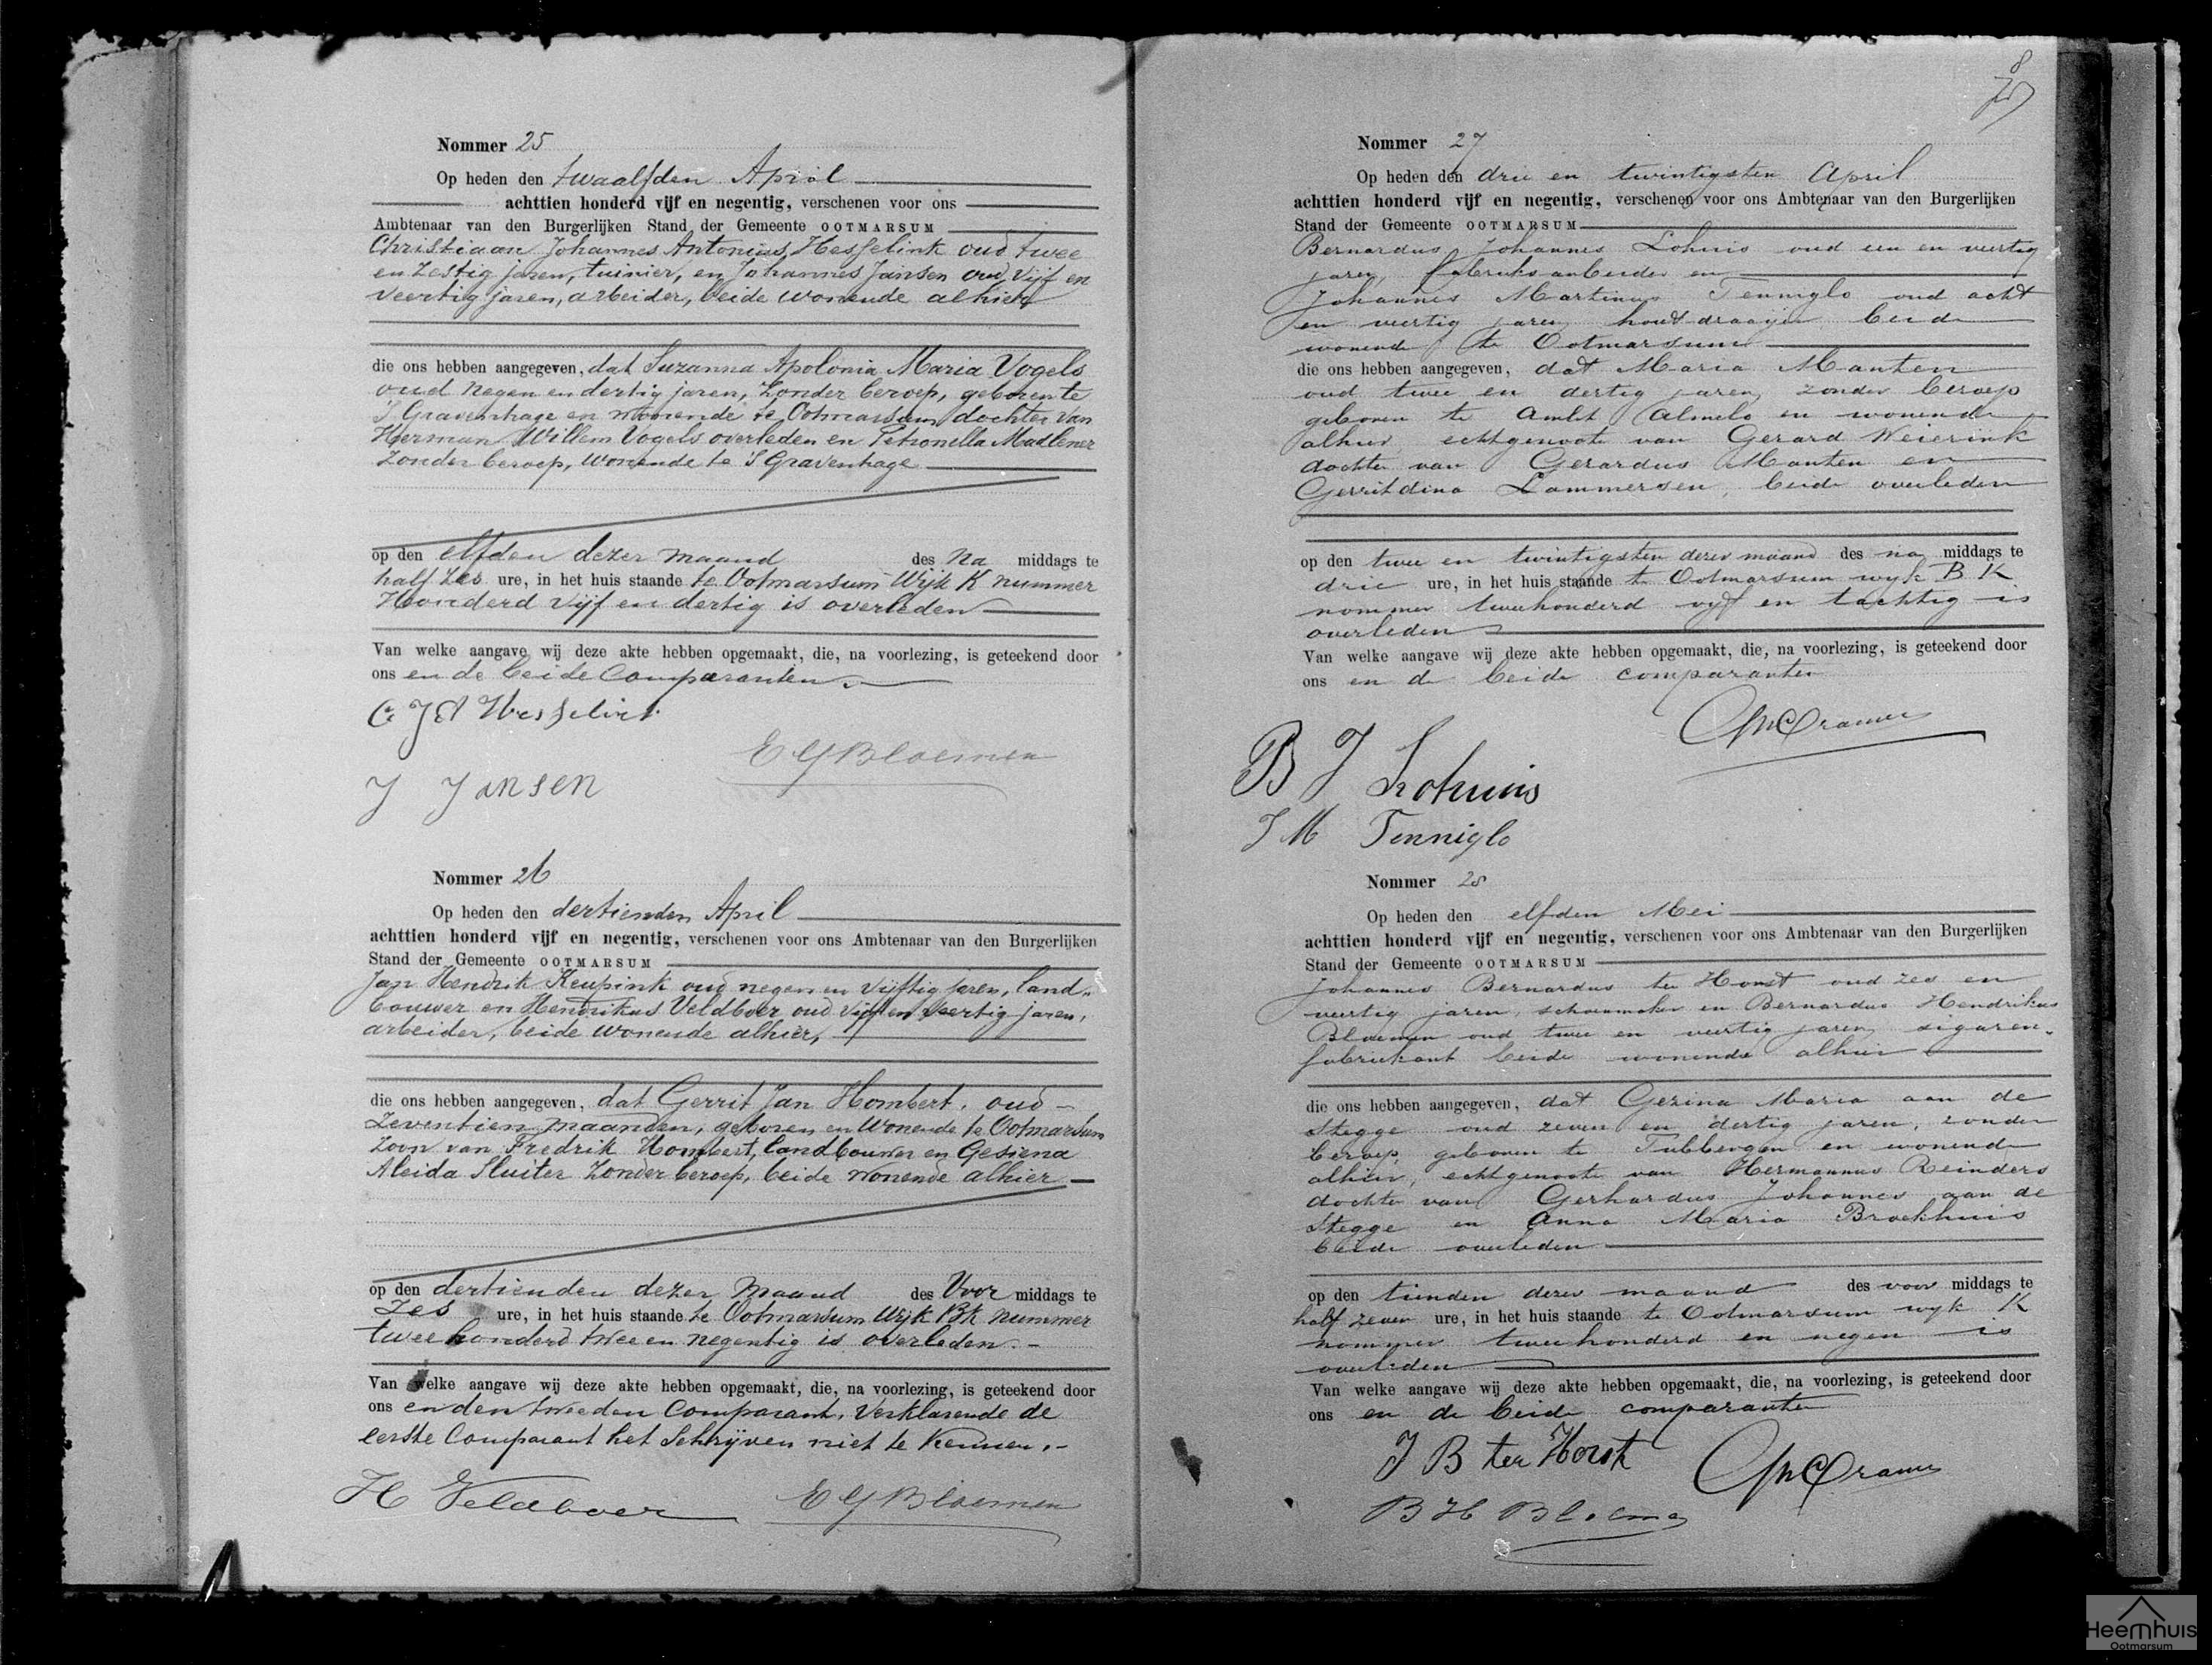 Nommer 25
Op heden den twaalfden April
achttien honderd vijf en negentig, verschenen voor ons
Ambtenaar van den Burgerlijken Stand der Gemeente OOTMARSUM
Christiaan Johannes Antonius Hesselink oud twee
en zestig jaren, tuinier, en Johannes Jansen oud vijf en
veertig jaren, arbeider, beide wonende alhier
die ons hebben aangegeven, dat Suzanna Apolonia Maria Vogels
oud negen en dertig jaren, zonder beroep, geboren te
'S Gravenhage en wonende te Ootmarsum dochter van
Herman Willem Vogels overleden en Petronella Madlener
zonder beroep, wonende te 'S Gravenhage
op den elfden dezer maand des Na middags te
half zes ure, in het huis staande te Ootmarsum Wijk K nummer
Honderd vijf en dertig is overleden
Van welke aangave wij deze akte hebben opgemaakt, die, na voorlezing, is geteekend door
ons en de beide Comparanten.
C J A Hesselink
E G Bloemen
J Jansen
Nommer 26
Op heden den dertienden April
achttien honderd vijf en negentig, verschenen voor ons Ambtenaar van den Burgerlijken
Stand der Gemeente OOTMARSUM
Jan Hendrik Keupink oud negen en vijftig jaren, land-
bouwer en Hendrikus Veldboer oud vijf en veertig jaren,
arbeider, beide wonende alhier,
die ons hebben aangegeven, dat Gerrit Jan Hombert, oud
zeventien maanden, geboren en wonende te Ootmarsum
zoon van Fredrik Hombert, landbouwer en Gesiena
Aleida Sluiter zonder beroep, beide wonende alhier
op den dertienden dezer maand des Voor middags te
zes ure, in het huis staande te Ootmarsum Wijk BK nummer
twee honderd twee en negentig is overleden.
Van welke aangave wij deze akte hebben opgemaakt, die, na voorlezing, is geteekend door
ons en den tweeden Comparant, verklarende de
eerste Comparant het schrijven niet te kennen.
H Veldboer E G Bloemen
8
Nommer 27
Op heden den drie en twintigsten April
achttien honderd vijf en negentig, verschenen voor ons Ambtenaar van den Burgerlijken
Stand der Gemeente OOTMARSUM
Bernardus Johannes Lohuis oud een en veertig
jaren, fabrieksarbeider en
Johannes Martinus Tenniglo oud acht
en veertig jaren houtdraaijer beide
wonende te Ootmarsum
die ons hebben aangegeven, dat Maria Manten
oud twee en dertig jaren zonder beroep
geboren te Ambt Almelo en wonende
alhier echtgenoote van Gerard Weierink
dochter van Gerardus Manten en
Gerritdina Lammersen, beide overleden
op den twee en twintigsten dezer maand des na middags te
drie ure, in het huis staande te Ootmarsum wijk B K
nommer tweehonderd vijf en tachtig is
overleden
Van welke aangave wij deze akte hebben opgemaakt, die, na voorlezing, is geteekend door
ons en de beide comparanten
Cramer
B J Lohuis
J M Tenniglo
Nommer 28
Op heden den elfden Mei
achttien honderd vijf en negentig, verschenen voor ons Ambtenaar van den Burgerlijken
Stand der Gemeente OOTMARSUM
Johannes Bernardus ter Horst oud zes en
veertig jaren, schoenmaker en Bernardus Hendrikus
Bloemen oud twee en veertig jaren, sigaren-
fabriekant beide wonende alhier
die ons hebben aangegeven, dat Gezina Maria aan de
Stegge oud zeven en dertig jaren, zonder
beroep, geboren te Tubbergen en wonende
alhier, echtgenoote van Hermannus Reinders
dochter van Gerhardus Johannes aan de
Stegge en Anna Maria Broekhuis
beide overleden
op den tienden dezer maand des voor middags te
half zeven ure, in het huis staande te Ootmarsum wijk K
nommer tweehonderd en negen is
overleden
Van welke aangave wij deze akte hebben opgemaakt, die, na voorlezing, is geteekend door
ons en de beide comparanten
J B ter Horst Cramer
B H Bloemen
Heemhuis
Ootmarsum